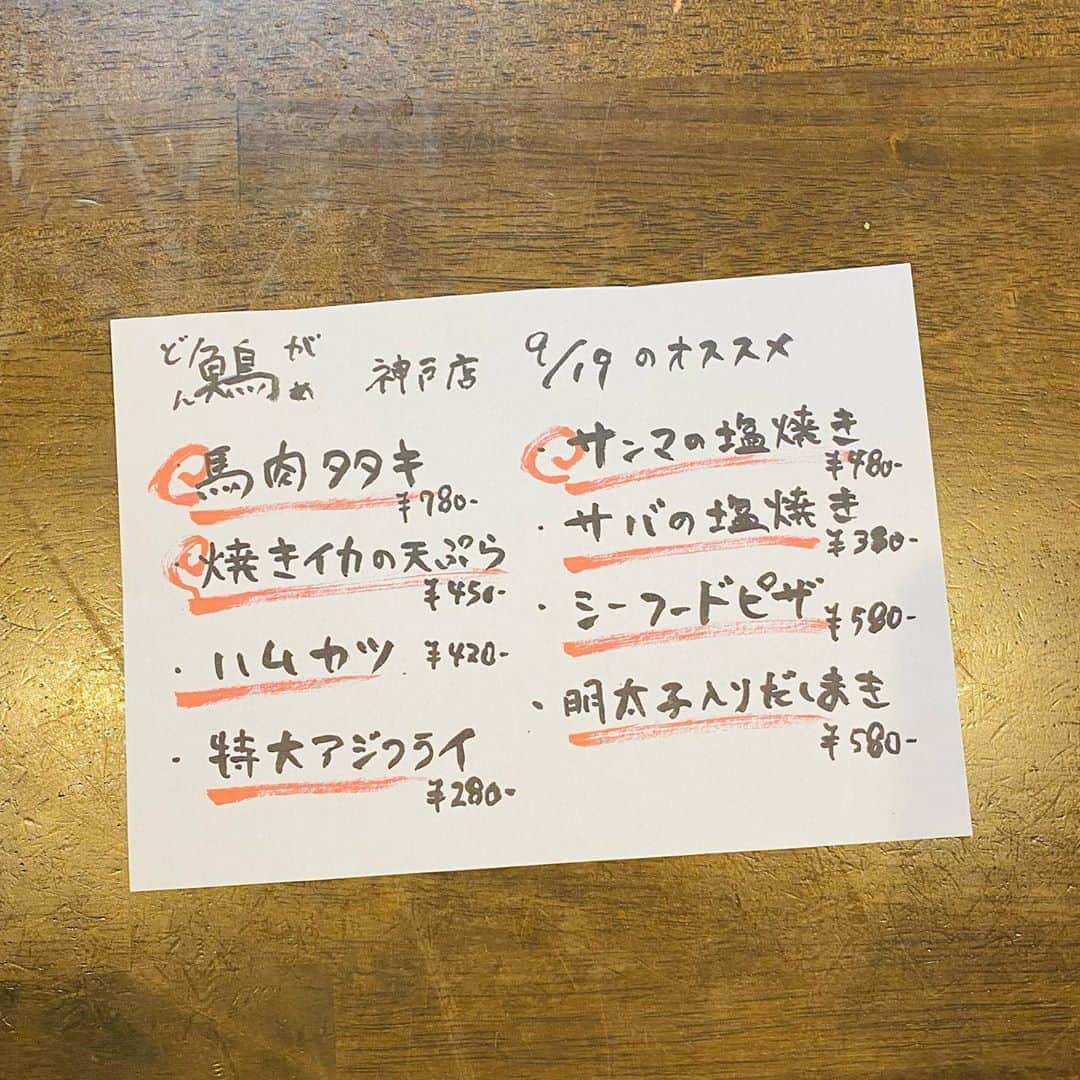 どん 鷠 がめ 神戸店 9/19のオススメ
・馬肉タタキ
¥780-
・焼きイカの天ぷら
¥450-
・ハムカツ ¥420-
・特大アジフライ
¥280-
・サンマの塩焼き
¥480-
・サバの塩焼き
¥380-
・シーフードピザ ¥580-
・明太子入りだしまき
¥580-